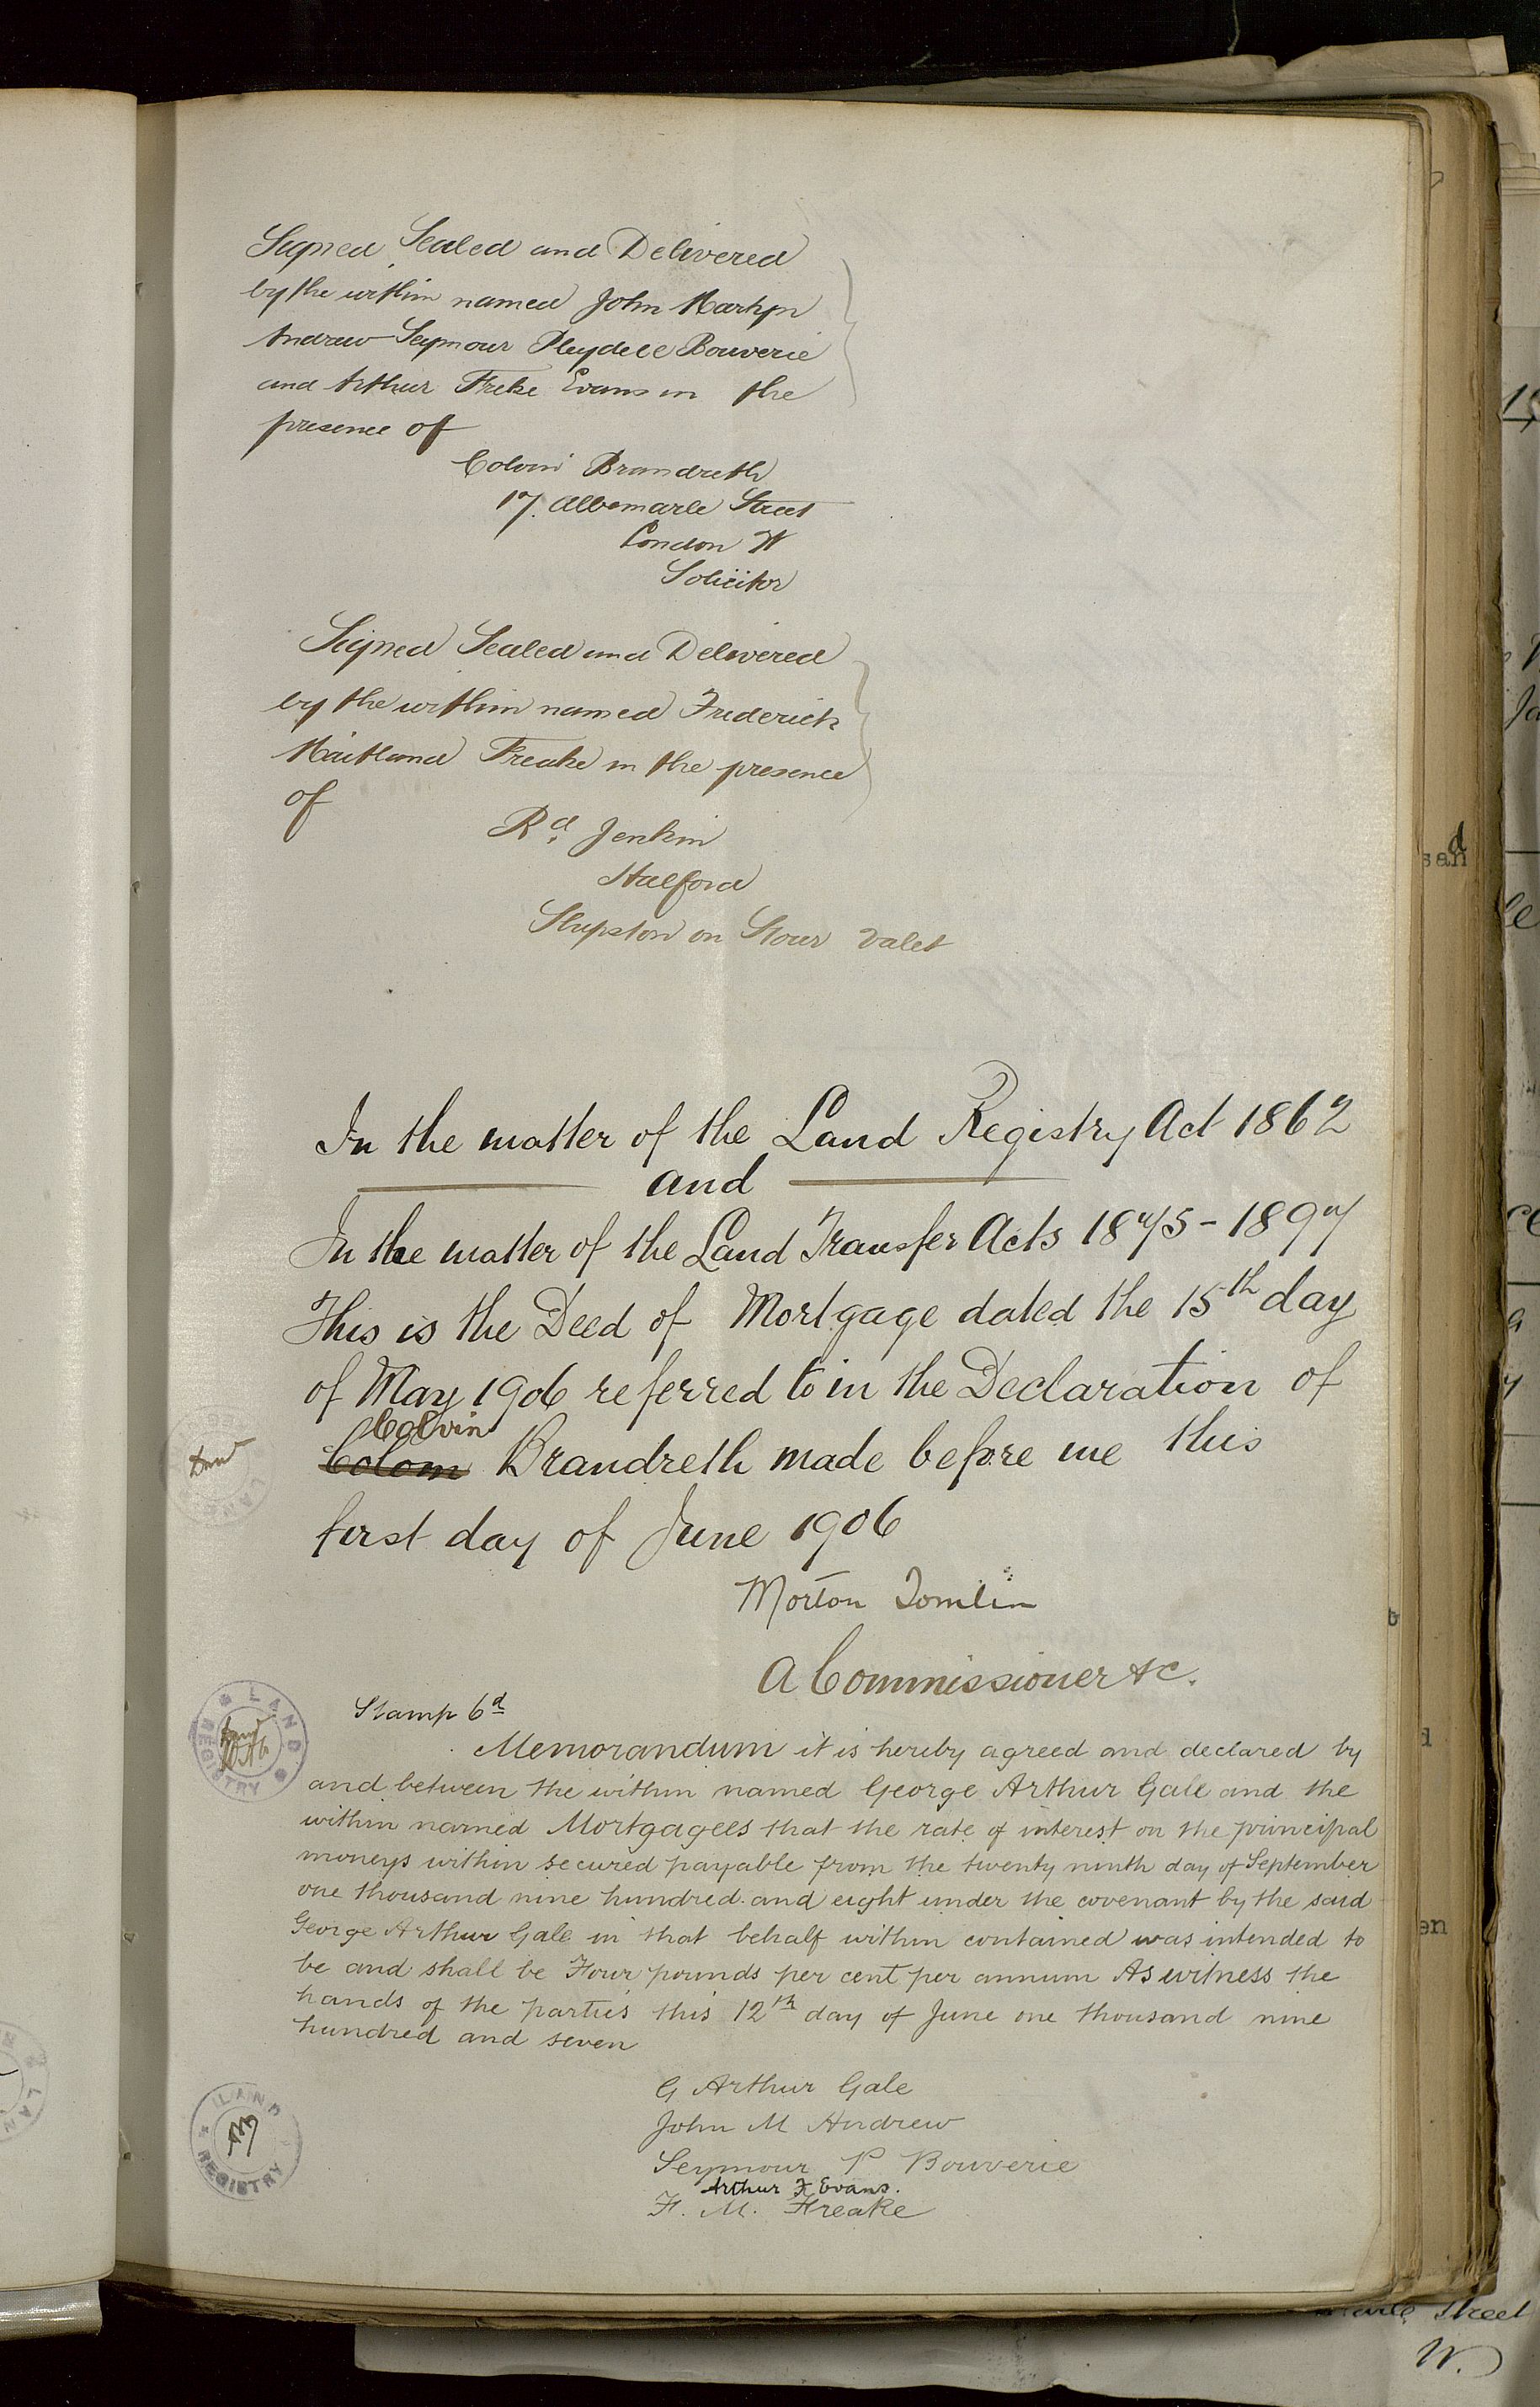 Signed Sealed and Delivered
by the within named John Martyn
Andrew Seymour Pleydell Bouverie
and Arthur Freke Evans in the
presence of
Colvin Brandreth
17. Albemarle Street
London W
Solicitor
Signed Sealed and Delivered
by the within named Frederick
Maitland Freake in the presence
of
Rd. Jenkin
Halford
Shipston on Stour Valet
In the matter of the Land Registry Act 1862
and
In the matter of the Land Transfer Acts 1875-1897
This is the Deed of Mortgage dated the 15th day
of May 1906 referred to in the Declaration of
Colvin
Colom Brandreth made before me this
first day of June 1906
Morton Tomlin
A Commissioner &c.
Stamp 6d
LAND REGISTRY
Memorandum it is hereby agreed and declared by
and between the within named George Arthur Gale and the
within named Mortgagees that the rate of interest on the principal
moneys within secured payable from the twenty ninth day of September
one thousand nine hundred and eight under the covenant by the said
George Arthur Gale in that behalf within contained was intended to
be and shall be Four pounds per cent per annum As witness the
hands of the parties this 12th day of June one thousand nine
hundred and seven
G Arthur Gale
John M Andrew
Seymour P Bouverie
Arthur F Evans.
F. M. Freake
LAND REGISTRY
Street
W.